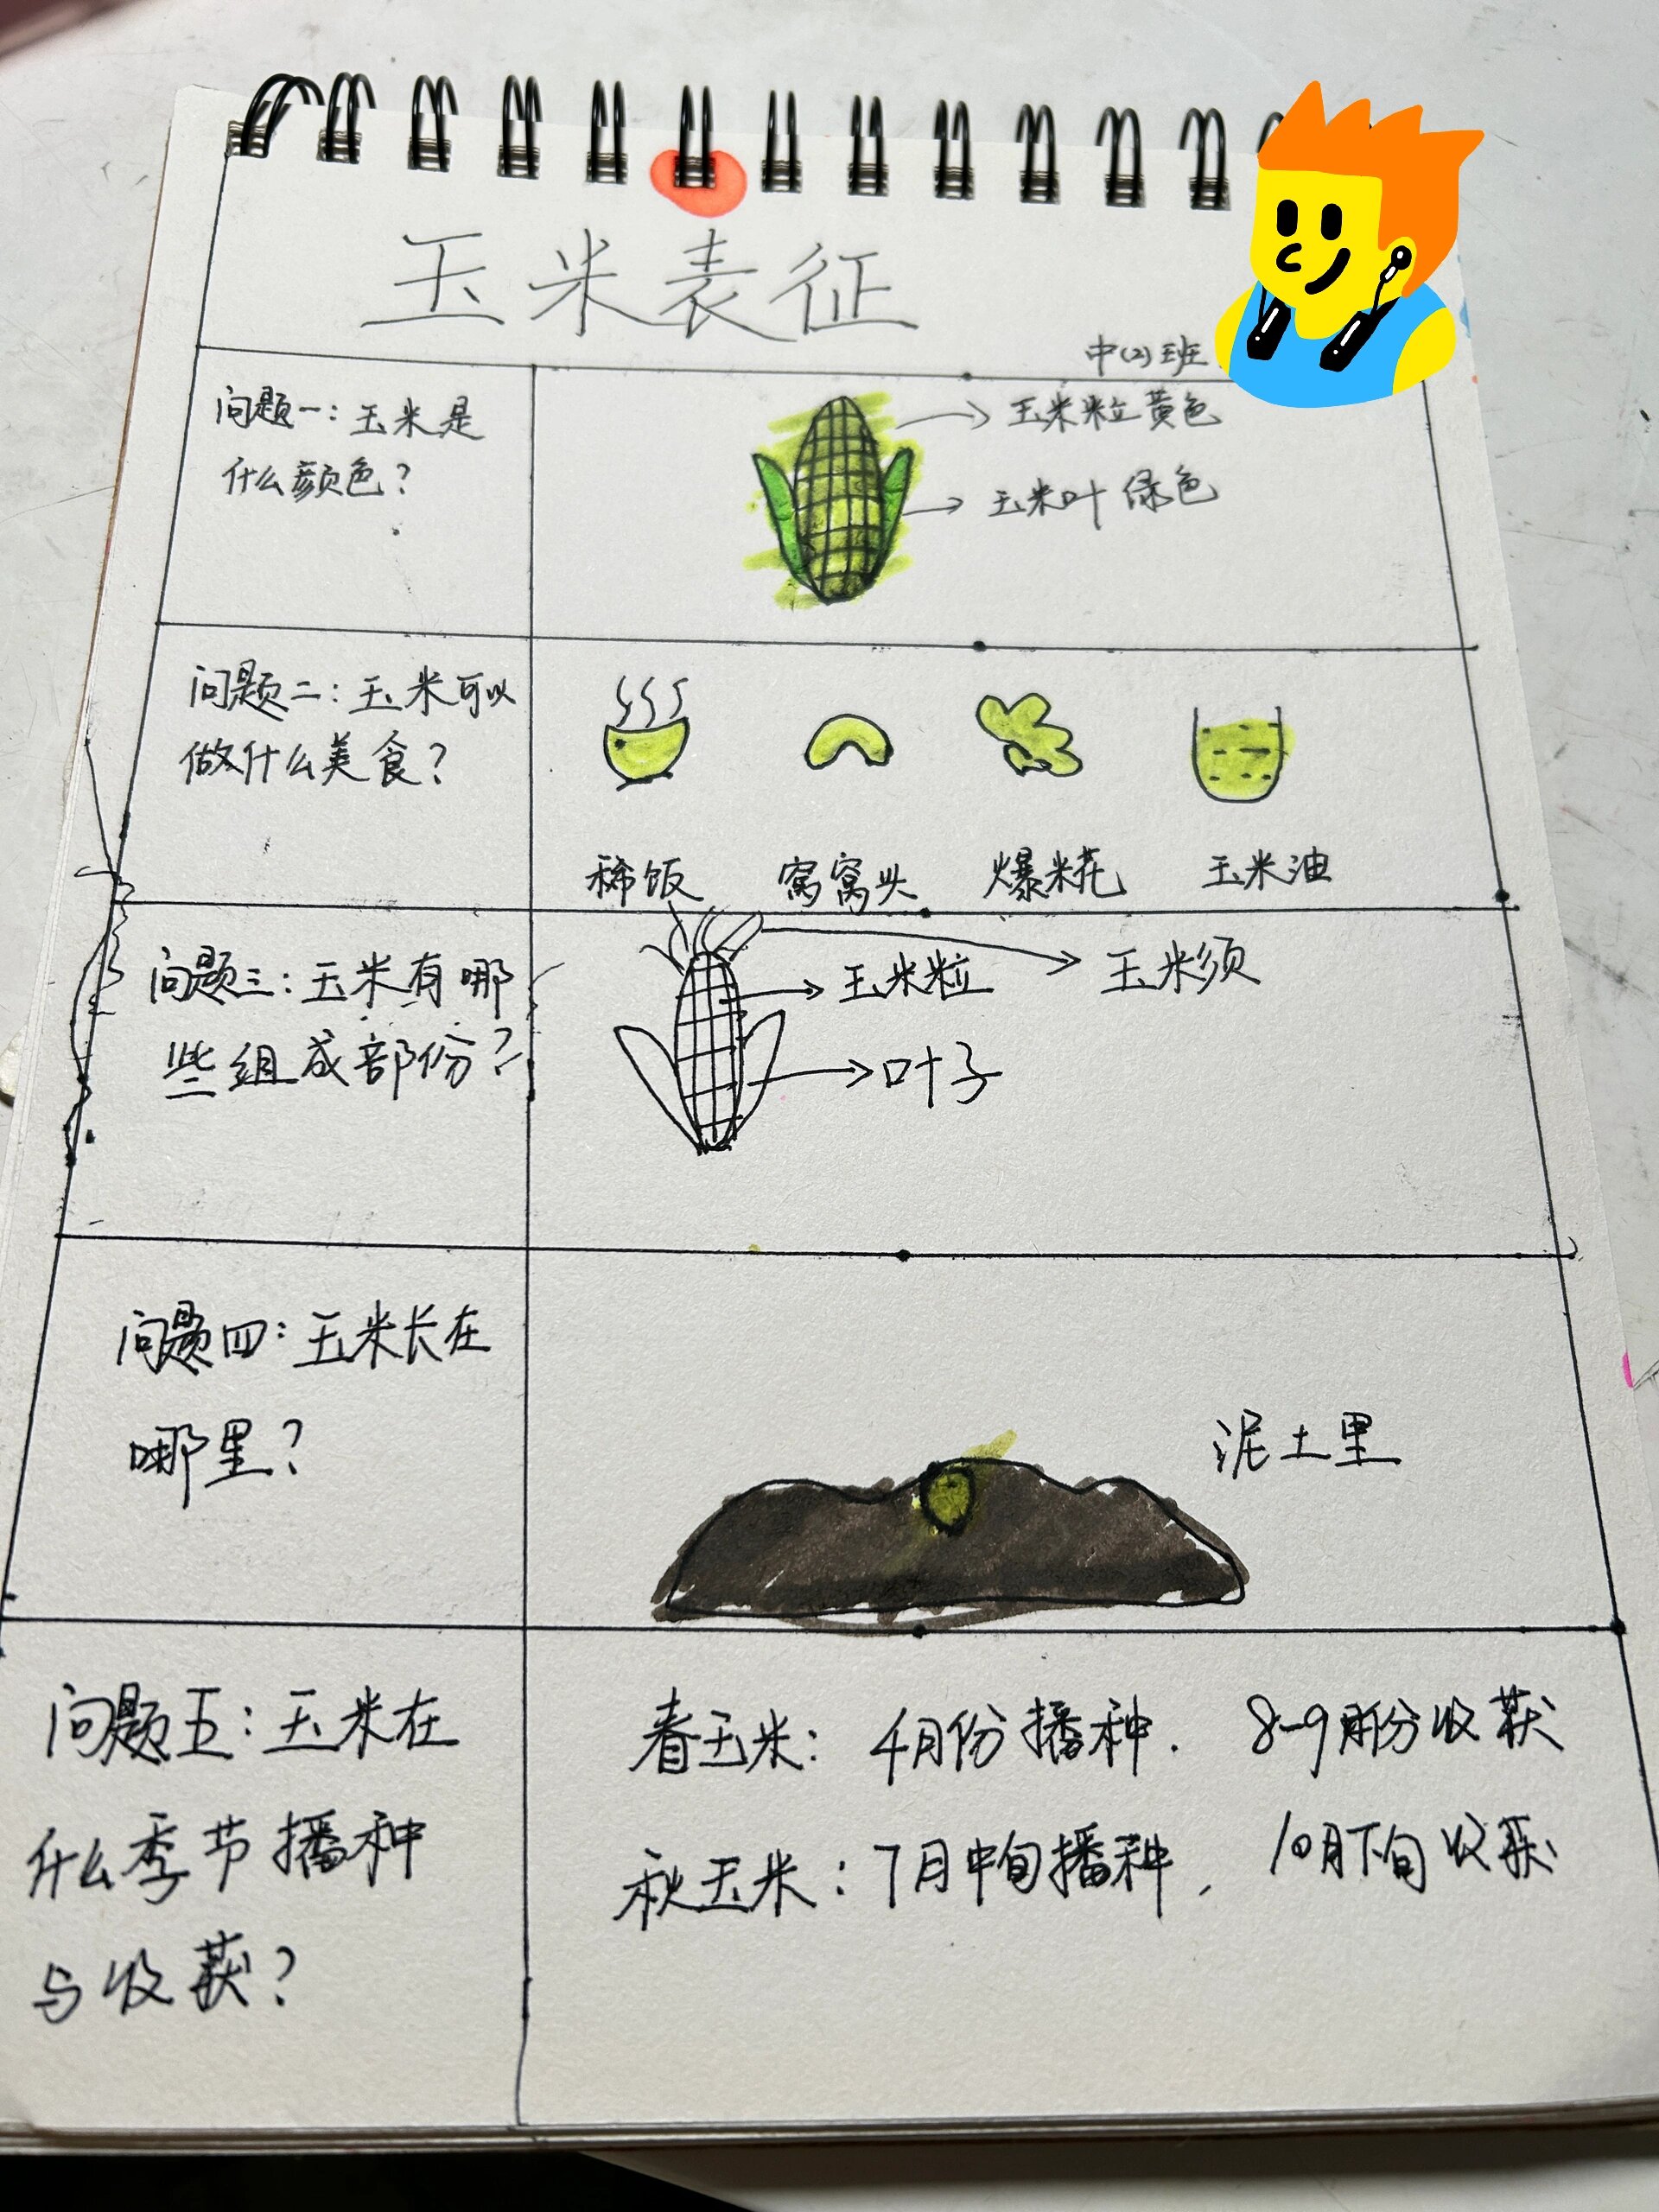 玉米表征
中(2)班
问题一:玉米是
什么颜色?
玉米粒黄色
玉米叶 绿色
问题二:玉米可以
做什么美食?
稀饭 窝窝头 爆米花 玉米油
问题三:玉米有哪
些组成部份?
玉米粒 玉米须
叶子
问题四:玉米长在
哪里?
泥土里
问题五:玉米在
什么季节播种
与收获?
春玉米: 4月份播种. 8-9月份收获
秋玉米:7月中旬播种, 10月下旬收获